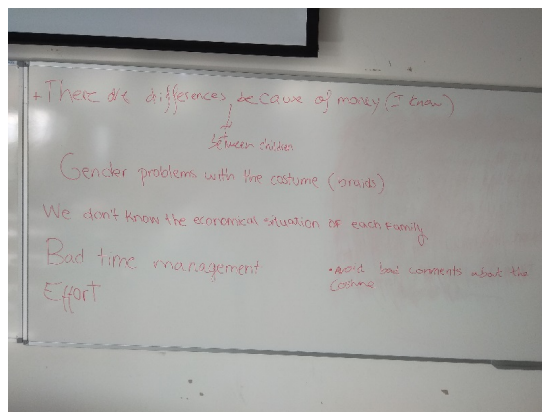 +There are differences because of money (I know)
between children
Gender problems with the costume (braids)
We don't know the economical situation of each family
Bad time management
Effort
•Avoid bad comments about the
costume